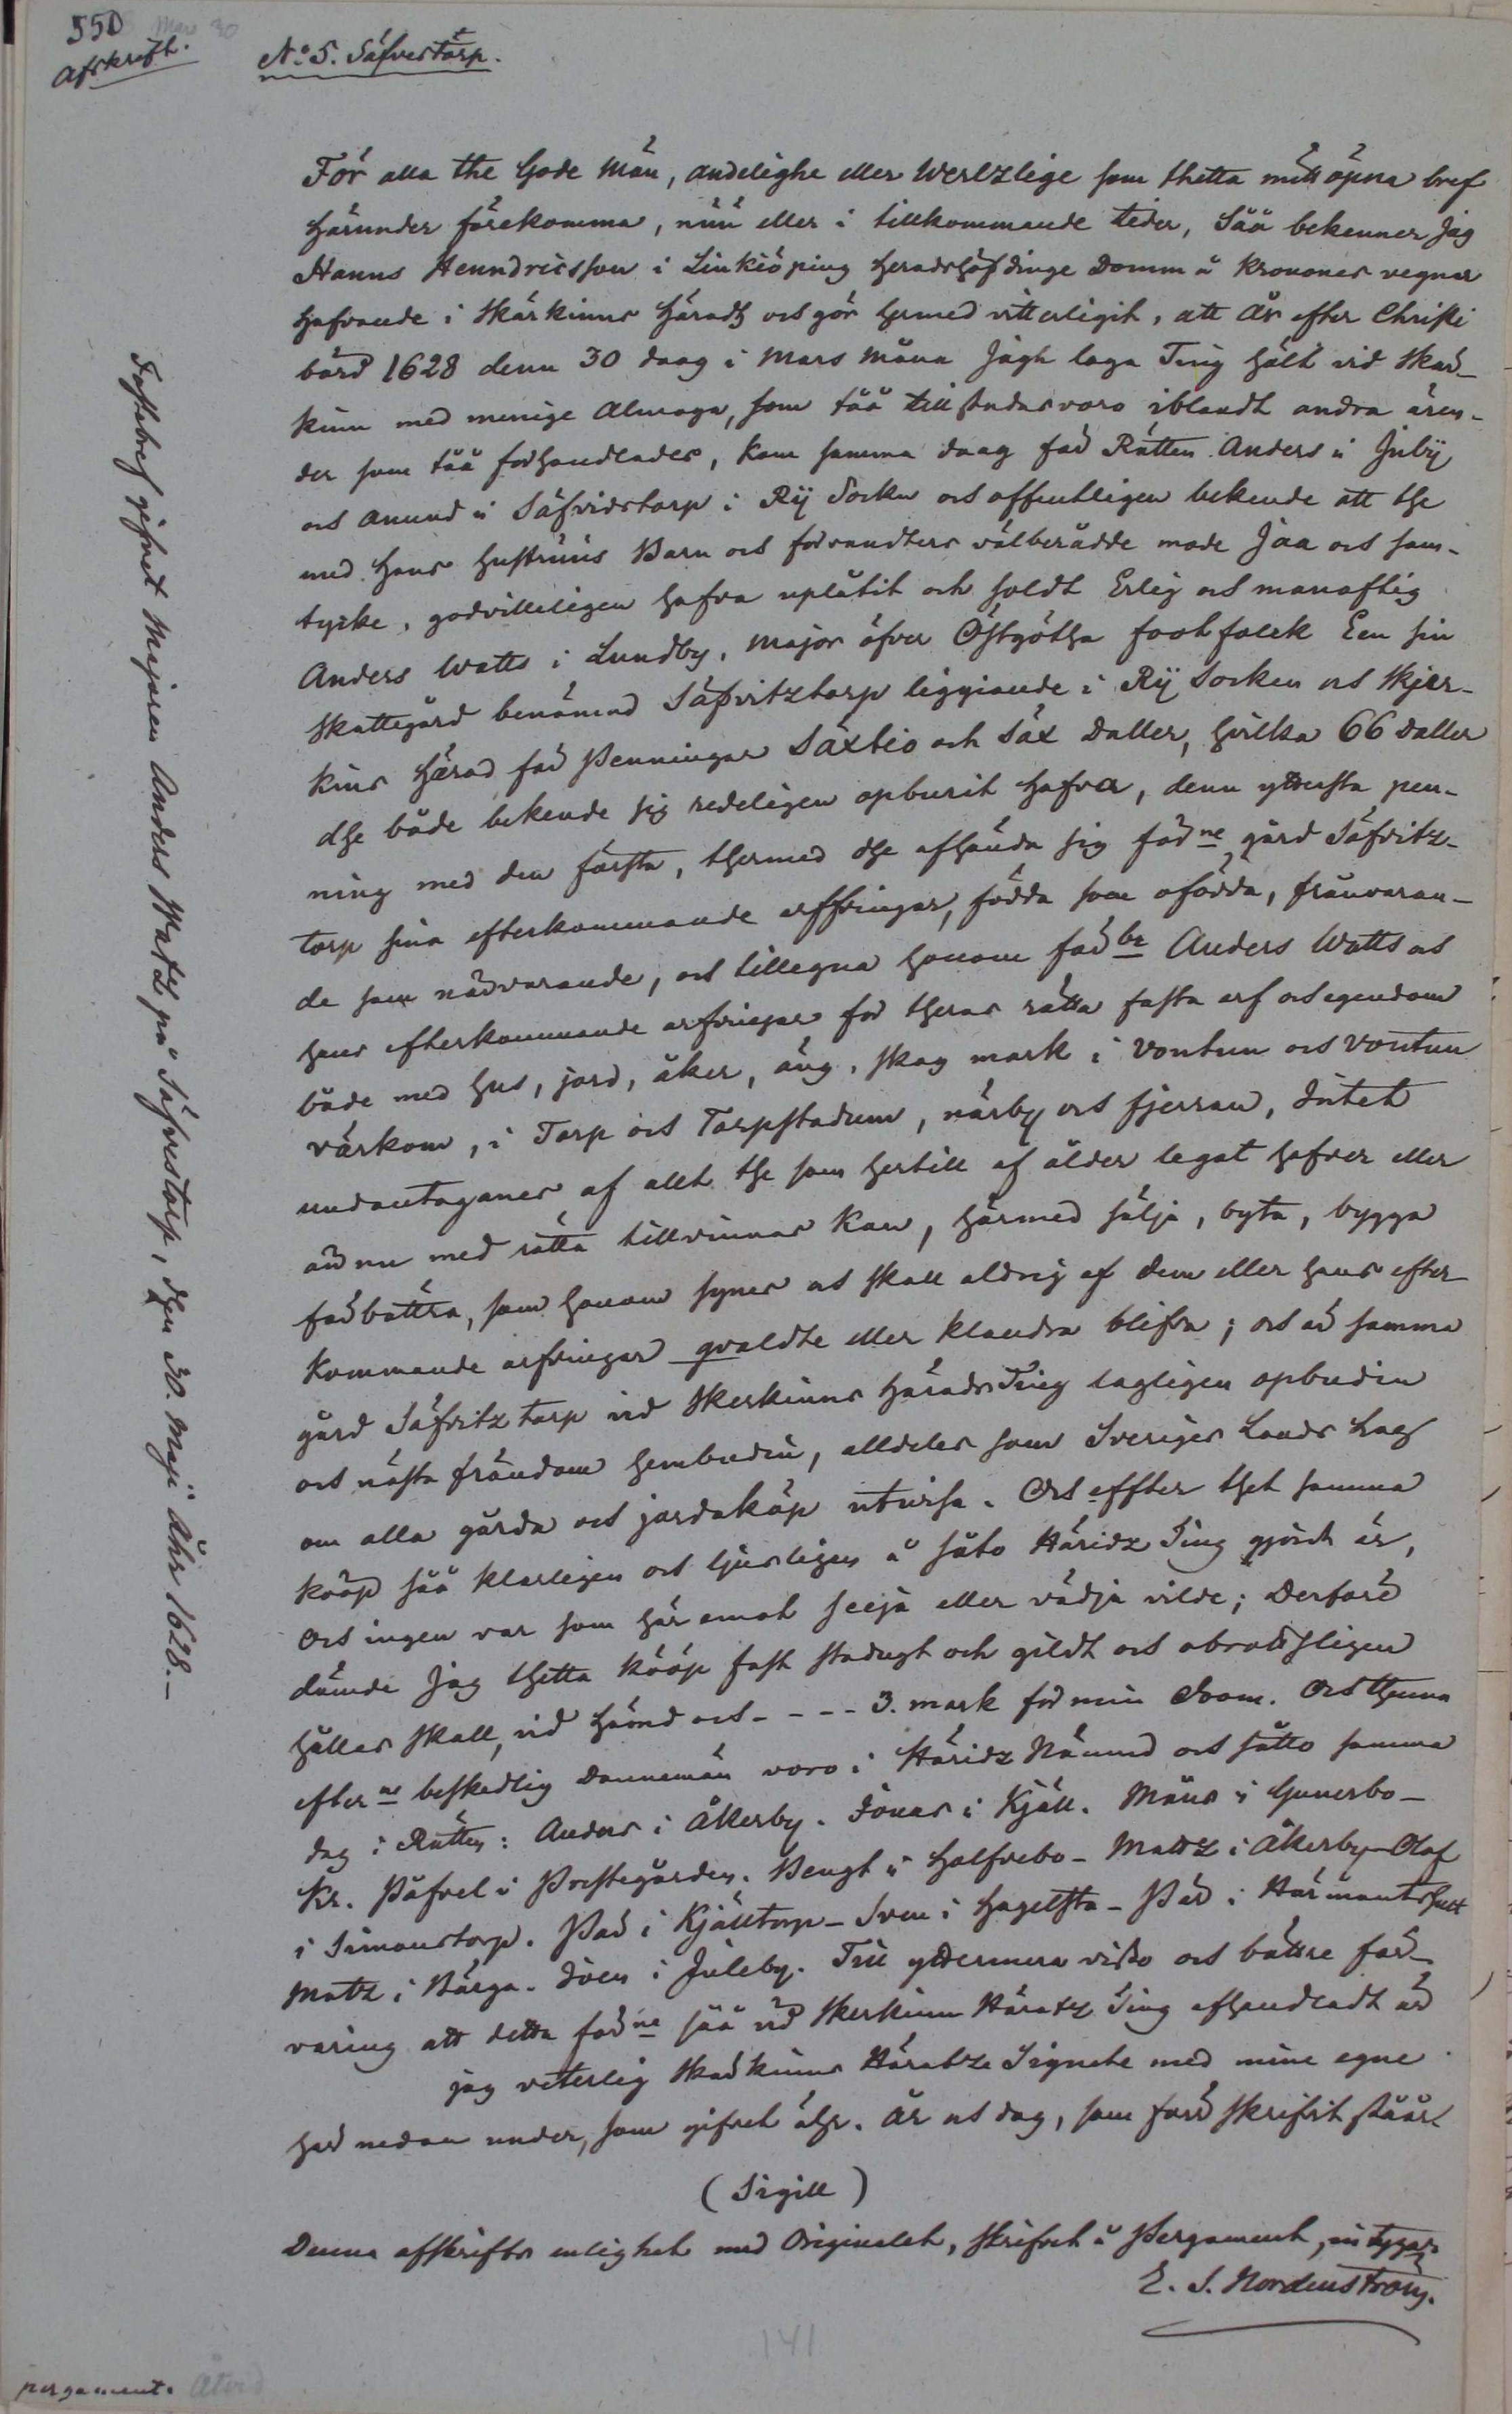 550 Mars 30
Afskrift.
No 5. Säfvestorp.
För alla the Gode Män, andelighe eller Werlzlige som thetta mitt öpna bref
härunder förekomma, nüü eller i tillkommande tider, Såå bekenner Jag
Hanns Henndricsson i Linkiöping heradshöfdinge Domm å Kronones vegnar
hafvande i Skärkinns häradz och gör hermed vitterligit, att År efter Christi
börd 1628 denn 30 daag i Mars Måna Jägh laga Ting hålt vid Skär-
kinn med menige Almoga, som tåå tillstädes voro iblandt andra ären-
der som tåå förhandlades, kom samma daag för Rätten Anders i Julÿ
och Amund i Säfvidstorp i Rÿ Sockn och offentligen bekende att the
med hans hustrüüs Barn och förvandters välberådde mode Jaa och sam-
tycke, godvilleligen hafva uplåtit och soldt Erlig och manhaftig
Anders Watts i Lundby, Major öfver Östgötha footfolck Een sin
Skattegård benämnd Säfvitztorp liggiande i Rÿ Socken och Skjer-
kins härad för Penningar Säxtio och Säx Daller, hvilka 66 daller
dhe både bekende sig redeligen opburit hafva, denn yttersta pen-
ning med den första, thermed dhe afhända sig förne gård Säfvitz-
torp sina efterkommande arffvingar, födda som ofödda, frånvaran-
de som närvarande, och tillegna honom förbe Anders Watts och
hans efterkommande arfvingar för theras rätta fasta arf och egendom
både med hus, jord, åker, äng, skog mark i vontun och vontun
värkom, i Torp och Torpstadum, närby och fjerran, Intet
undantaganes af allt the som hertill af ålder legat hafver eller
än nu med rätta tillvinnas kan, härmed sälja, byta, bygga
förbättra, som honom synes och skall aldrig af dem eller hans efter-
kommande arfvingar qvaldte eller klandra blifva; och är samma
gård Säfvitztorp vid Skerkinns häradsTing lagligen opbudin
och nästa frändom hembudin, alldeles som Sveriges Lands Lag
om alla gårda och jordaköp utvisa. Och effter thet samma
kööp såå klarligen och ljusligen å såto Häridz Ting gjordt är,
Och ingen var som här emot seeja eller vädja vilde; Derföre
dömde Jag thetta kööp fast stadugt och gildt och obrottsligen
hållas skall, vid hand och - - - - 3. mark för min Doom. Och thenna
efterne beskedlig Dannemän voro i Häridz Nämnd och såtto samma
dag i Rätten: Anders i Åkerby. Jönas i Kjäll. Måns i Gunerbo-
Kr. Påfvel i Prestegården. Bengt i Halfvebo - Mattz i Åkerby - Olof
i Simonstorp. Pär i Kjälltorp - Sven i Hagelsta - Pär i
Matz i Bärga. Sven i Juleby. Till yttermera visso och bättre för-
varing att detta förne såå vid Skerkinn Häratz Ting afhandladt är
jag veterlig Skärkinns Häratze Signete med mine egne
här nedan under, som gifvet ähr. År och dag, som förr skrifvit stäär.
(Sigill)
Denna afskrifts enlighet med Originalet, skrifvet å Pergament, intygar
E. S. Nordenström.
Fastebref gifvet Majoren Anders Watz på Säfvestorp, dhen 30. Maji Åhr 1628.-
141
pergament. Åter